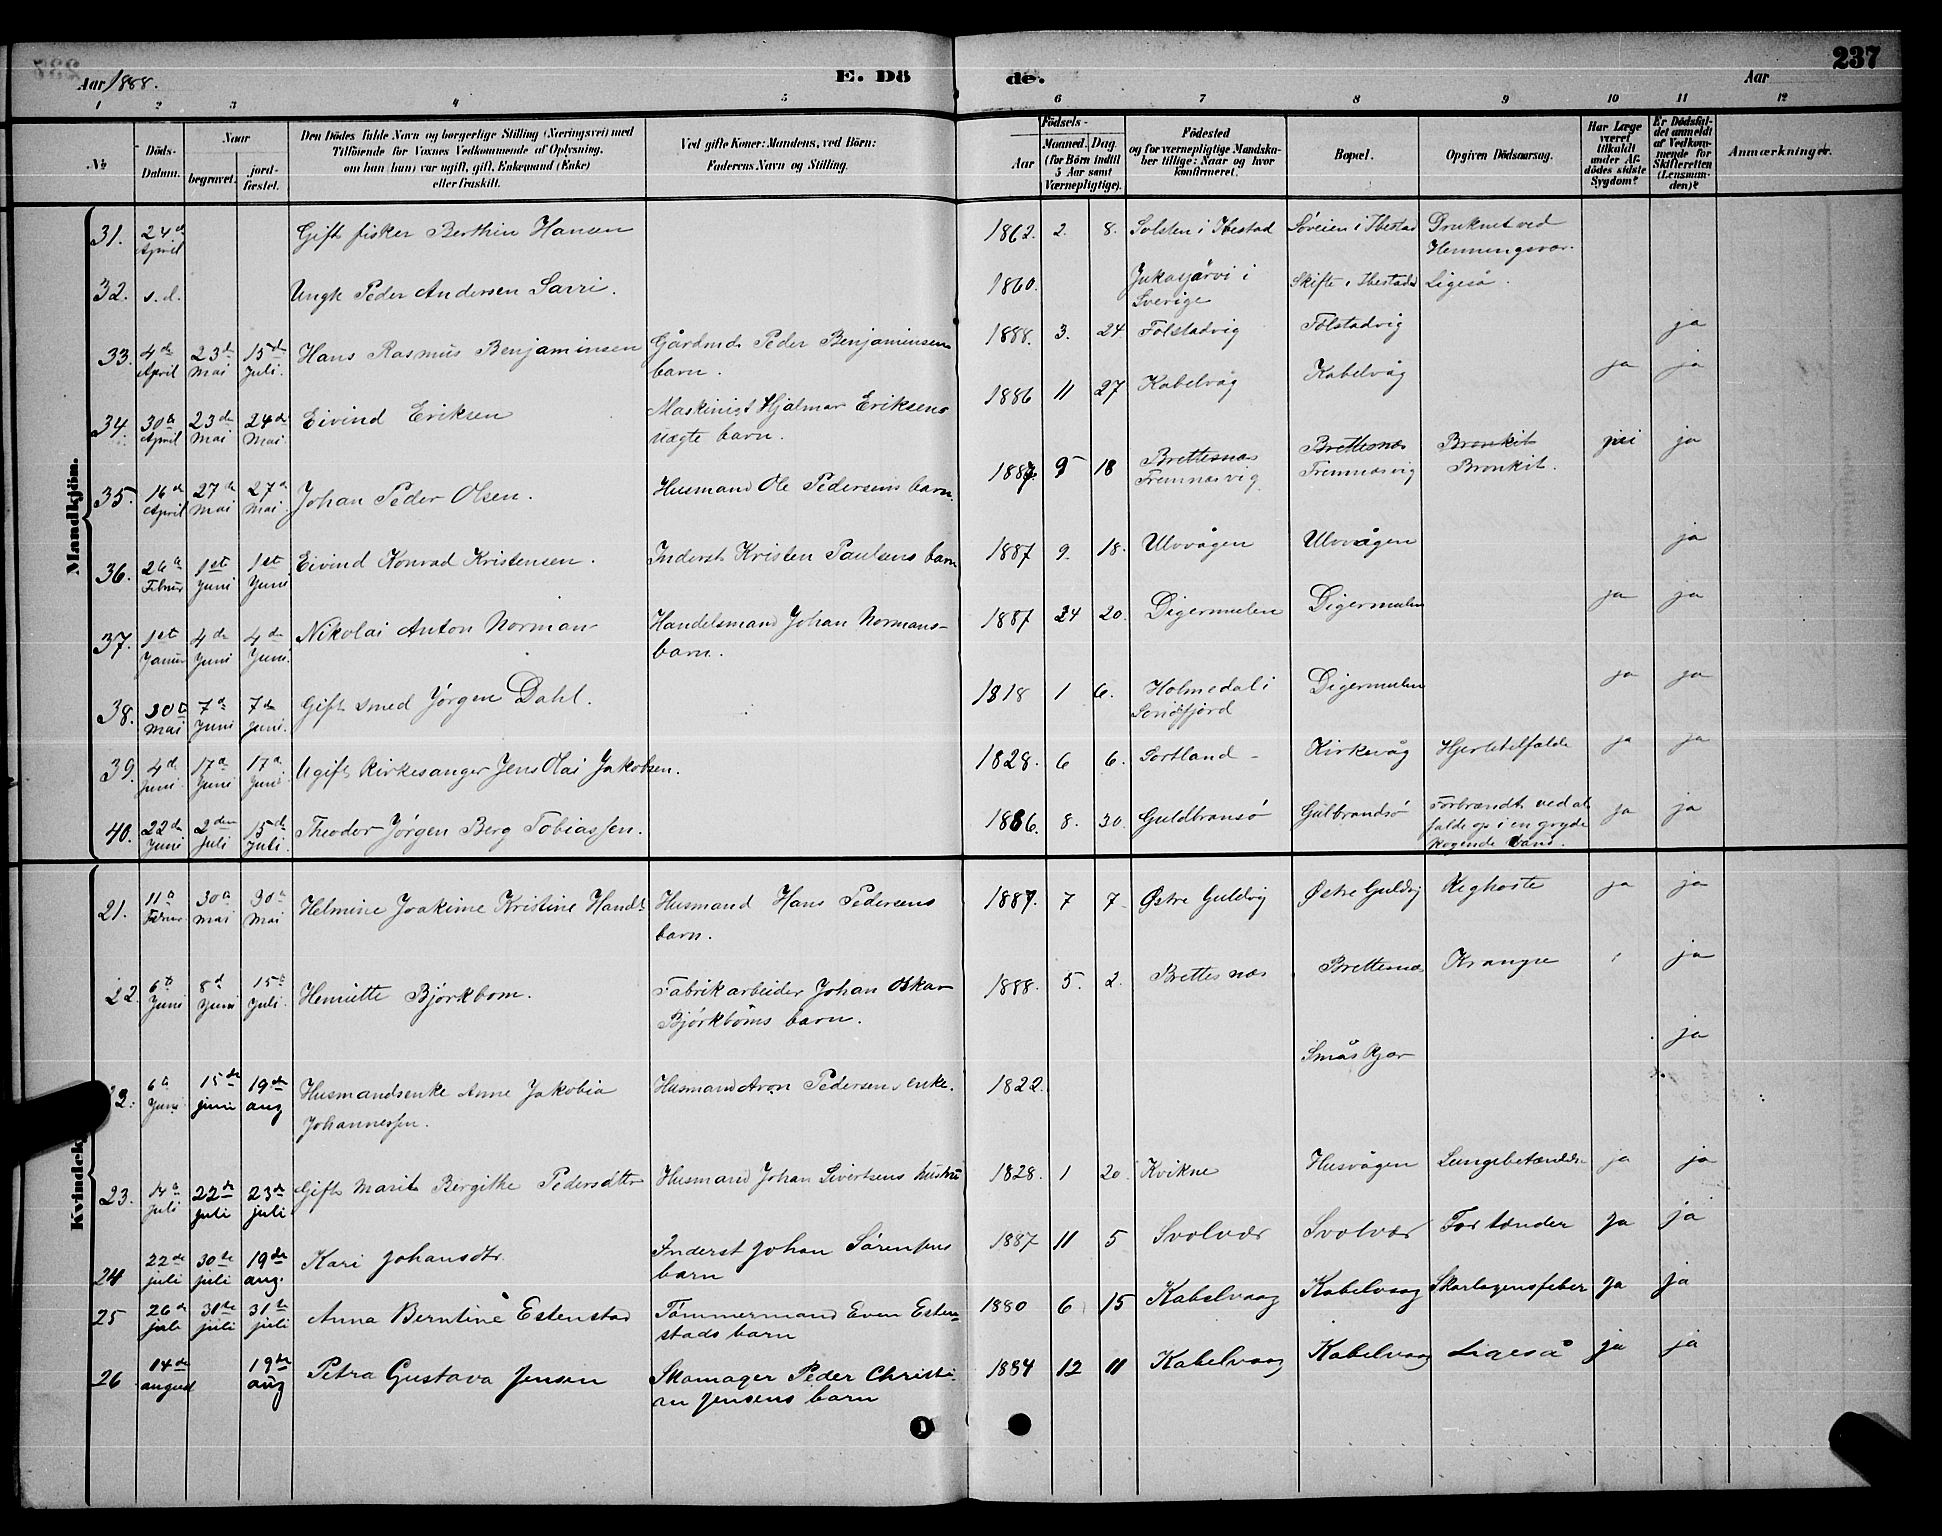 237
Aar 1888.
E. Dö
de.
Aar
1 2 3 4 5 6 7 8 9 10 11 12
№
Döds-Datum.
Naar
begravet.
jord-fæstet.
Den Dödes fulde Navn og borgerlige Stilling (Næringsvei) med
Tilföiende for Voxnes Vedkommende af Oplysning,
om han (hun) var ugift, gift, Enkemand (Enke)
eller fraskilt.
Ved gifte Koner: Mandens, ved Börn:
Faderens Navn og Stilling.
Födsels-
Aar
Maaned. Dag.
(for Börn indtil
5 Aar samt
Værnepligtige).
Födested
og for værnepligtige Mandska-
ber tillige: Naar og hvor
konfirmeret.
Bopæl.
Opgiven Dödsaarsag.
Har Læge
været
tilkaldt
under Af-
dödes sidste
Sygdom?
Er Dödsfal-
det anmeldt
af Vedkom-
mende for
Skifteretten
(Lensman-
den)?
Anmærkninger.
Mandkjön.
31. 24de April Gift fisker Berthin Hansen 1862. 2. 8. Solsten i Ibestad Søveien i Ibestad Druknet ved
Henningsvær.
32. s.d. Ungk Peder Andersen Sarri. 1860. Jukasjärvi i
Sverige Skifte i Ibestad Ligeså.
33. 4de April 23de Mai 15de Juli. Hans Rasmus Benjaminsen Gårdmd. Peder Benjaminsens
barn. 1888. 3. 24. Følstadvig Følstadvig ja
34. 30te April 23de Mai 24de Mai. Eivind Eriksen Maskinist Hjalmar Eriksens
uægte barn. 1886 11 27 Kabelvåg Kabelvåg ja ja
35. 16de April 27de Mai 27de Mai. Johan Peder Olsen. Husmand Ole Pedersens barn. 1887 9 18 Brettesnæs
Fremnæsvig Brettesnæs
Fremnæsvig Bronkit
Bronkit. ja
36. 26de Februar 1ste Juni 1ste Juni Eivind Konrad Kristensen. Inderst Kristen Paulsens barn 1887 9. 18. Ulvvågen Ulvvågen ja
37. 1ste Januar 4de Juni 4de Juni. Nikolai Anton Norman Handelsmand Johan Normans
barn. 1887 20. Digermulen Digermulen ja ja
38. 30te Mai 7de Juni 7de Juni. Gift smed Jørgen Dahl. 1818 1 6. Holmedal i
Søndfjord Digermulen ja ja
39. 4de Juni. 17de Juni 17de Juni Ugift Kirkesanger Jens Olai Jakobsen. 1828. 6 6. Sortland Kirkevåg Hjertetilfælde ja ja
40. 22de Juni 2den Juli 15de Juli. Theodor Jørgen Berg Tobiassen. 1886. 8. 30. Guldbransø Gulbrandsø Forbrændt ved at
falde op i en gryde
kogende vand. ja ja
Kvindekj
21. 11te Februar 30te Mai 30te Mai Helmine Joakime Kristine Hansd. Husmand Hans Pedersens
barn. 1887. 7 7. Østre Guldvig Østre Guldvig Kighoste ja ja
22. 6te Juni 8de Juni 15de Juli. Henriette Bjørkbom. Fabrikarbeider Johan Oskar
Bjørkboms barn. 1888. 5. 2. Brettesnæs Brettesnæs Krampe ja
22. 6te Juni 15de juni 19de aug Husmandsenke Anne Jakobia
Johannessen. Husmand Aron Pedersens enke. 1822. Småskjær ja
23. 14de juli 22de juli 23de juli Gift Marit Bergithe Pedersdtter Husmand Johan Sivertsens hustru 1828. 1 20. Kvikne Husvågen Lungebetændelse ja ja
24 22de juli 30te juli 19de aug. Kari Johansdtr. Inderst Johan Sørensens
barn 1887 11 5 Svolvær Svolvær For tænder ja ja
25 26de juli 31te juli 31te juli Anna Berntine Estenstad Tømmermand Even Esten-
stads barn 1880 6 15 Kabelvaag Kabelvaag Skarlagensfeber ja ja
26 14de august 19de aug Petra Gustava Jensen Skomager Peder Christi-
an Jensens barn 1884 12 11 Kabelvaag Kabelvaag Ligeså ja ja